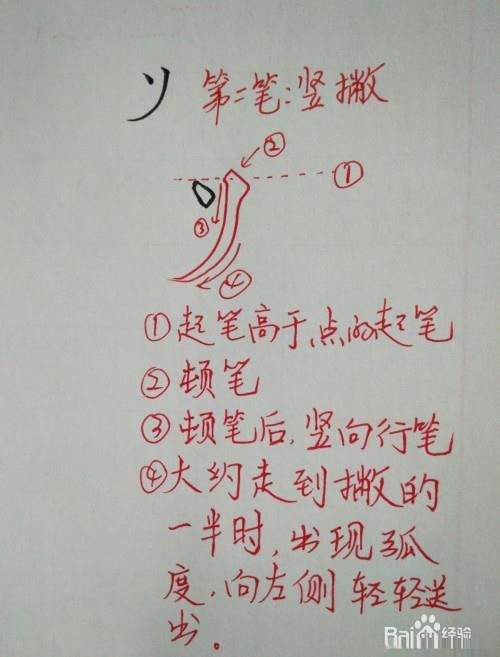 ソ 第二笔:竖撇
②
①
③
④
①起笔高于、点的起笔
②顿笔
③顿笔后,竖向行笔
④大约走到撇的
一半时,出现弧
度,向左侧轻轻送
出。
Baidu经验